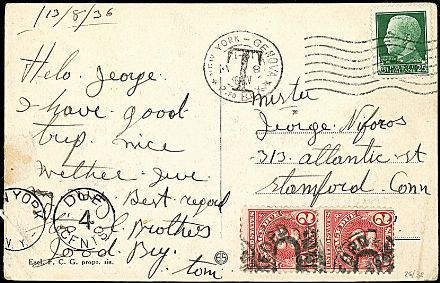 1/13/8/36
Helo George.
I have good
trip nice
wether give
Best regard
Brothers
Good By.
tom
NEW YORK - GENOVA
T
Mister
George Niforos
313 atlantic st
Stamford Conn
YORK
N.Y.
DUE
4
CENTS
2
2
Esel. F. C. G. propr. ris.
26/38